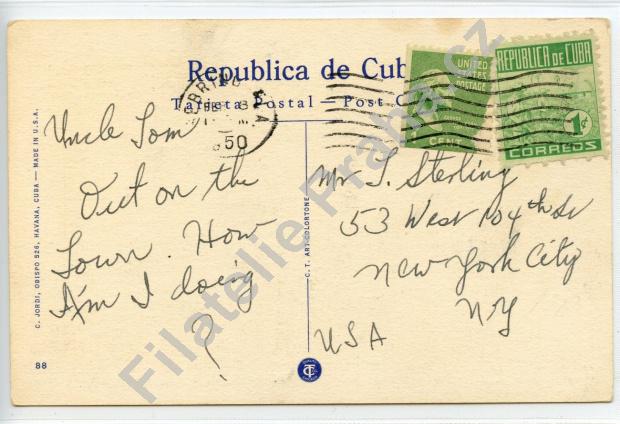 Republica de Cub
Tarjeta Postal — Post C
UNITED
STATES
POSTAGE
CENT
REPUBLICA DE CUBA
1¢
CORREOS
FEB
50
Uncle Tom
Out on the
Town. How
Am I doing
?
Mr S. Sterling
53 West 104th St
New York City
NY
USA
C. JORDI, OBISPO 526, HAVANA, CUBA — MADE IN U.S.A.
C. T. ART-COLORTONE
88
Filatelie Praha.cz